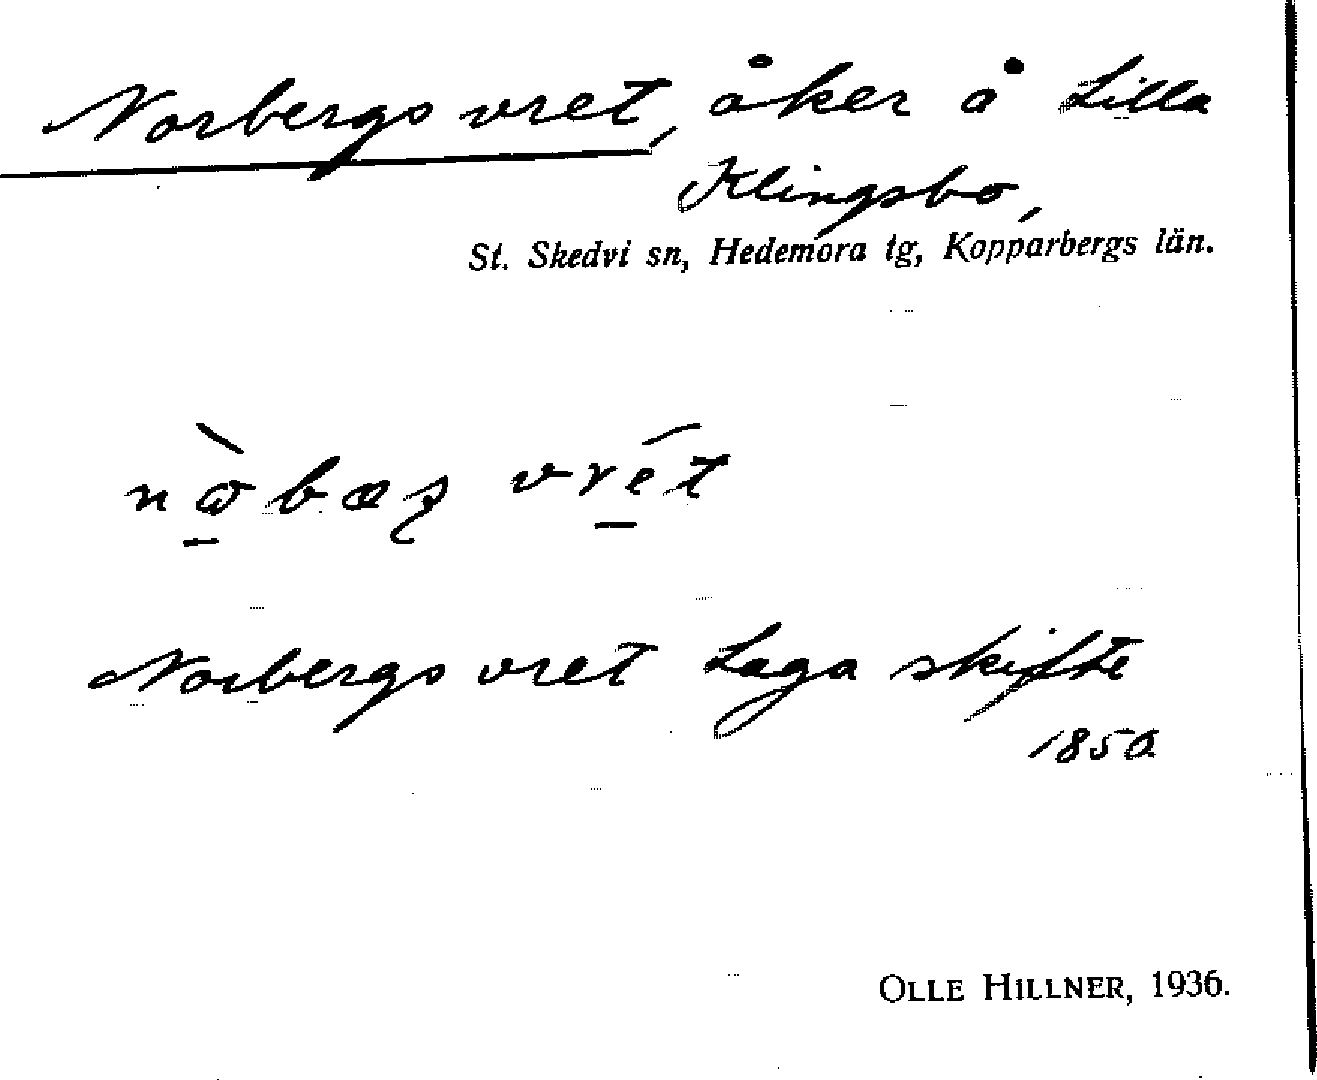 Norbergsvret, åker å Lilla
Klingsbo,
St. Skedvi sn, Hedemora tg, Kopparbergs län.
vret
Norbergsvret Laga skifte
1850
OLLE HILLNER, 1936.